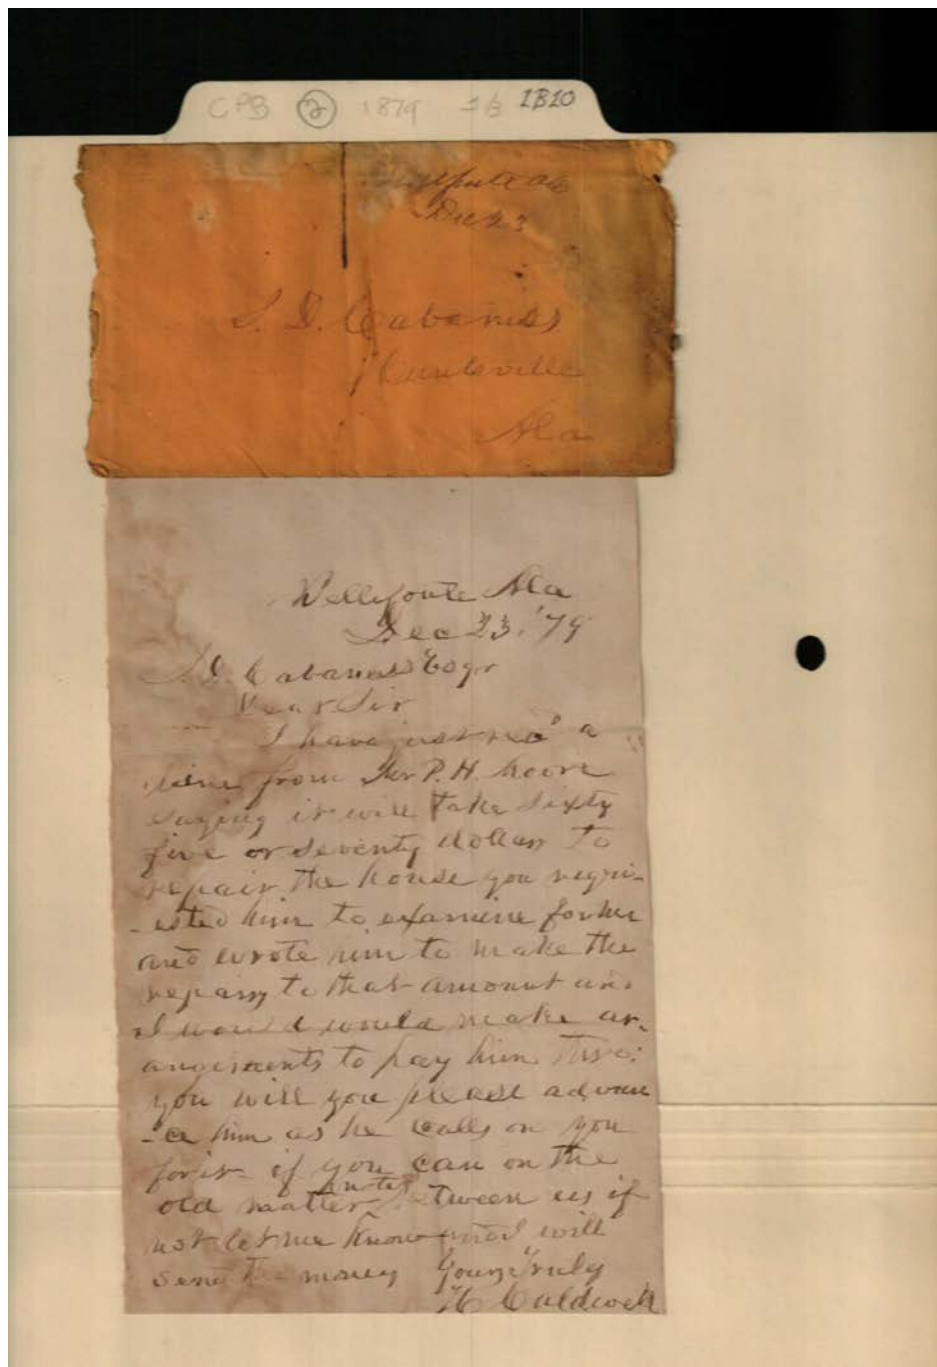 CPB 2 1879 1B10
Dec 23
S. D. Cabaniss
Huntsville
Ala
Bellefonte Ala
Dec 23, '79
S. D. Cabaniss Esqr
Dear Sir
I have just recd a
line from P. H. Moore
saying it will take sixty
five or seventy dollars to
repair the house you requ-
-ested him to examine for me
and wrote him to make the
repairs to that amount and
I would would make ar-
angements to pay him
you will you please advan
-ce him as he calls on you
for it if you can on the
old matter between us if
not let me know and I will
send money Yours Truly
H Caldwell